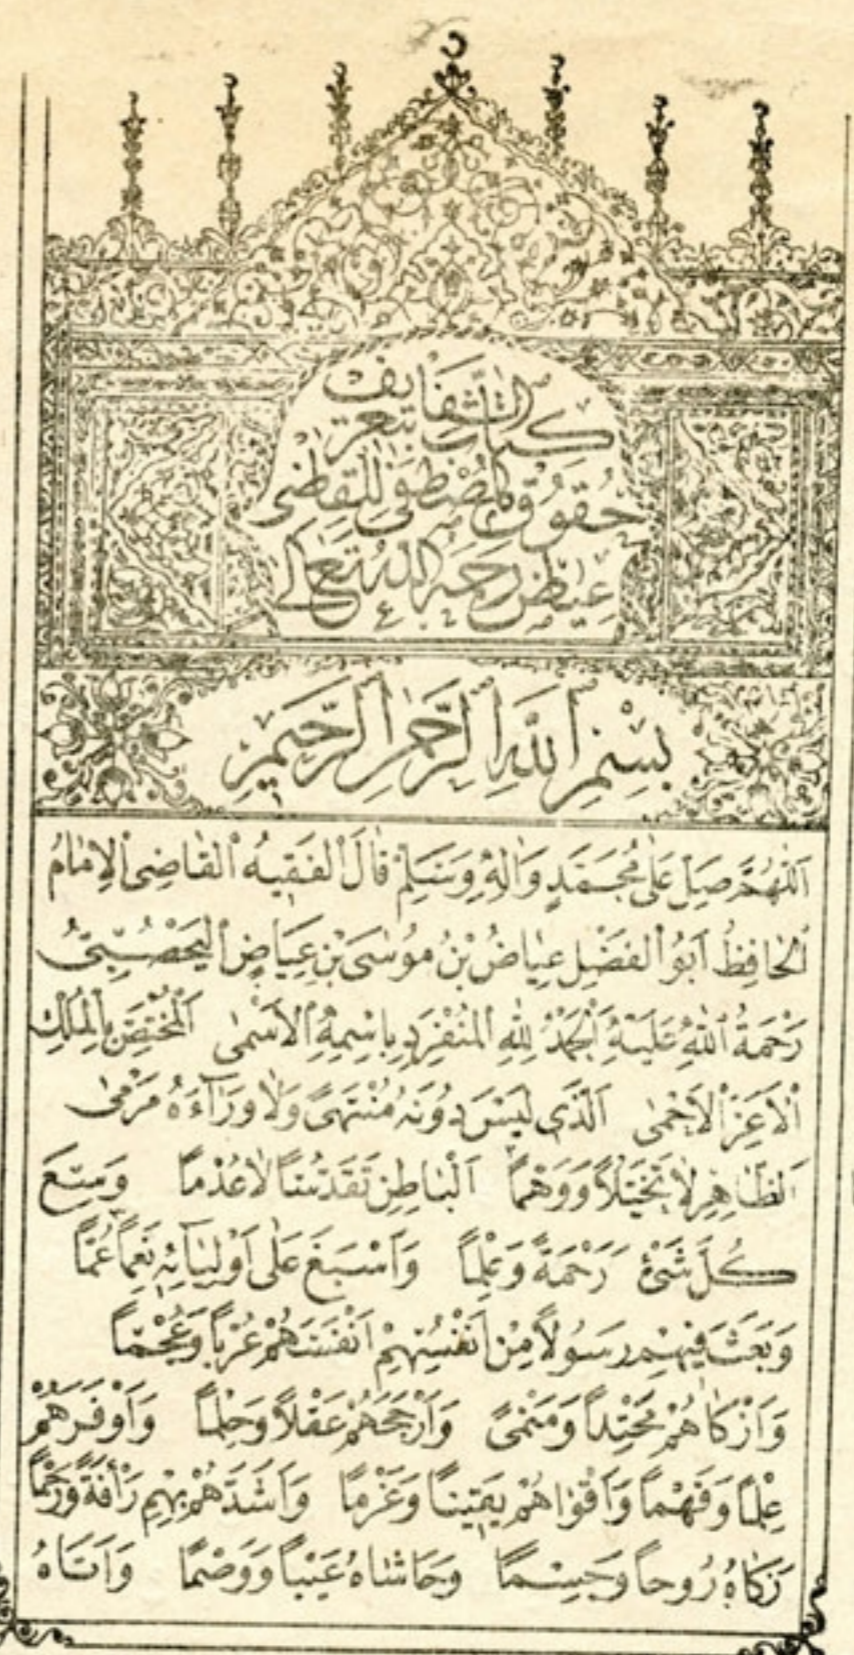 كتاب الشفا بتعريف
حقوق المصطفى للقاضى
عياض رحمه الله تعالى
بِسْمِ اللهِ الرَّحْمٰنِ الرَّحِيمِ
اَللّٰهُمَّ صَلِّ عَلٰى مُحَمَّدٍ وَاٰلِهٖ وَسَلِّمْ قَالَ الْفَقِيهُ الْقَاضِى الْاِمَامُ
الْحَافِظُ اَبُو الْفَضْلِ عِيَاضُ بْنُ مُوسَى بْنِ عِيَاضٍ الْيَحْصُبِىُّ
رَحْمَةُ اللهِ عَلَيْهِ اَلْحَمْدُ لِلّٰهِ الْمُنْفَرِدِ بِاسْمِهِ الْاَسْمٰى الْمُخْتَصِّ بِالْمُلْكِ
الْاَعَزِّ الْاَحْمٰى اَلَّذِى لَيْسَ دُونَهُ مُنْتَهًى وَلَا وَرَآءَهُ مَرْمٰى
اَلظَّاهِرِ لَا تَخَيُّلاً وَوَهْمًا اَلْبَاطِنِ تَقَدُّسًا لَا عُدْمًا وَسِعَ
كُلَّ شَىْءٍ رَحْمَةً وَعِلْمًا وَاَسْبَغَ عَلٰى اَوْلِيَآئِهِ نِعَمًا عُمًّا
وَبَعَثَ فِيهِمْ رَسُولاً مِنْ اَنْفُسِهِمْ اَنْفَسَهُمْ عُرْبًا وَعُجْمًا
وَاَزْكَاهُمْ مَحْتِدًا وَمَنْمًى وَاَرْجَحَهُمْ عَقْلاً وَحِلْمًا وَاَوْفَرَهُمْ
عِلْمًا وَفَهْمًا وَاَقْوَاهُمْ يَقِينًا وَعَزْمًا وَاَشَدَّهُمْ بِهِمْ رَأْفَةً وَرُحْمًا
زَكَّاهُ رُوحًا وَجِسْمًا وَحَاشَاهُ عَيْبًا وَوَصْمًا وَاٰتَاهُ